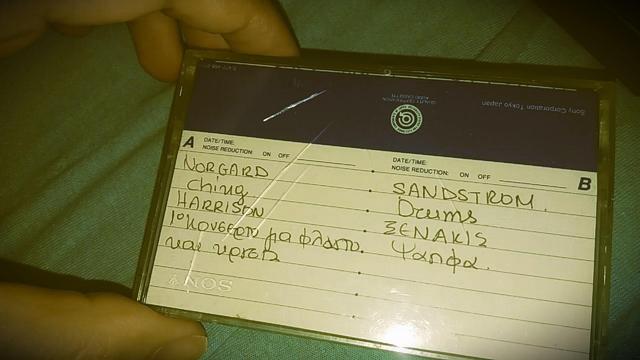 Sony Corporation Tokyo Japan
A DATE/TIME:
NOISE REDUCTION: ON OFF
NORGARD
Ching
HARRISON
1ο Κονσερτο για φλαουτο
και κρουστα
DATE/TIME:
NOISE REDUCTION: ON OFF B
SANDSTROM.
Drums
ΞENAKIS
Ψαπφα.
SONY